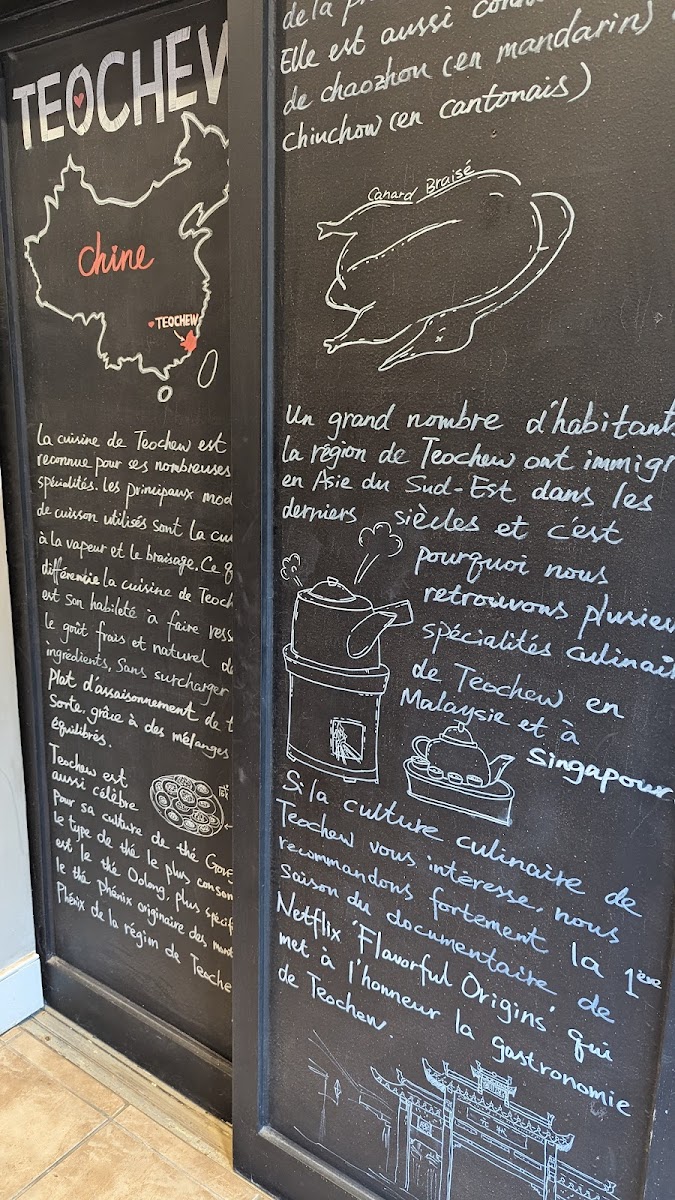 TEOCHEW
Chine
TEOCHEW
la cuisine de Teochew est
reconnue pour ses nombreuses
spécialités. les principaux mod
de cuisson utilisés sont la cui
à la vapeur et le braisage. Ce q
différencie la cuisine de Teoch
est son habileté à faire ress
le goût frais et naturel de
ingrédients, Sans surcharger
plat d'assaisonnement de t
Sorte, grâce à des mélanges
équilibrés.
Teochew est
aussi célèbre
pour sa culture de thé
le type de thé le plus conson
est le thé Oolong, plus spécif
le thé Phénix originaire des mont
Phénix de la région de Teoche
de la
Elle est aussi conn
de chaozhou (en mandarin)
chiuchow (en cantonais)
Canard Braisé
Un grand nombre d'habitants
la région de Teochew ont immigr
en Asie du Sud-Est dans les
derniers siècles et c'est
pourquoi nous
retrouvons plusieu
spécialités culinair
de Teochew en
Malaysie et à
Singapour
Si la culture culinaire de
Teochew vous intéresse, nous
recommandons fortement la 1ère
saison du documentaire de
Netflix 'Flavorful Origins' qui
met à l'honneur la gastronomie
de Teochew.